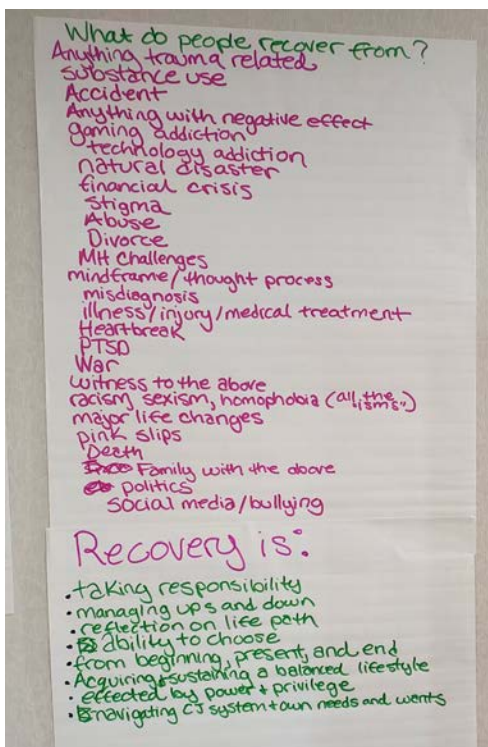 What do people recover from?
Anything trauma related
substance use
Accident
Anything with negative effect
gaming addiction
technology addiction
natural disaster
financial crisis
Stigma
Abuse
Divorce
MH Challenges
mindframe/thought process
misdiagnosis
illness/injury/medical treatment
Heartbreak
PTSD
War
witness to the above
racism, sexism, homophobia (all the "isms")
major life changes
pink slips
Death
Family with the above
politics
social media/bullying
Recovery is:
• taking responsibility
• managing ups and down
• reflection on life path
• ability to choose
• from beginning, present, and end
• Acquiring + sustaining a balanced lifestyle
• effected by power + privilege
• navigating CJ system + own needs and wants